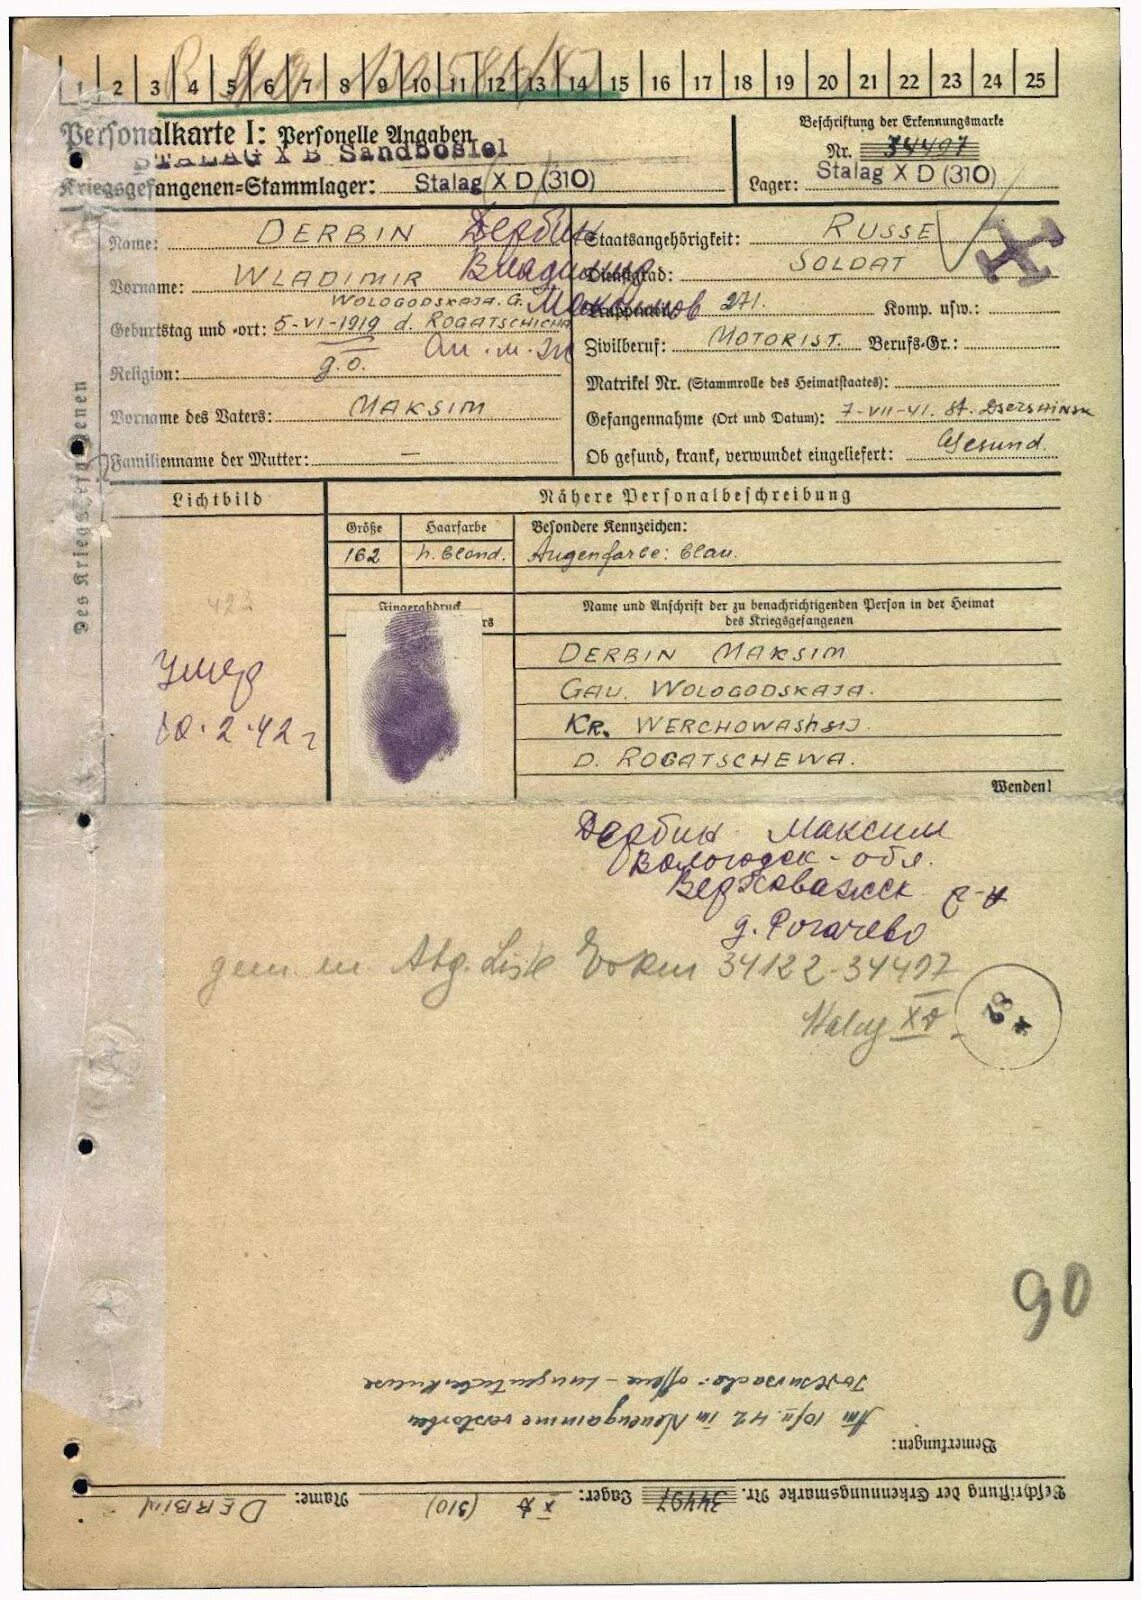 1 2 3 4 5 6 7 8 9 10 11 12 13 14 15 16 17 18 19 20 21 22 23 24 25
Personalkarte I: Personelle Angaben
STALAG X B Sandbostel
Kriegsgefangenen-Stammlager: Stalag X D (310)
Beschriftung der Erkennungsmarke
Nr. 34497
Lager: Stalag X D (310)
Name: DERBIN Дербин
Vorname: WLADIMIR Владимир
WOLOGODSKAJA. G.
Geburtstag und -ort: 5-VI-1919 d. ROGATSCHICHA
Religion: g.o.
Vorname des Vaters: MAKSIM
Familienname der Mutter: —
Staatsangehörigkeit: RUSSE
Dienstgrad: SOLDAT
271. Komp. usw.:
Zivilberuf: MOTORIST. Berufs-Gr.:
Matrikel Nr. (Stammrolle des Heimatstaates):
Gefangennahme (Ort und Datum): 7-VII-41. St. DSERSHINSK
Ob gesund, krank, verwundet eingeliefert: Gesund.
Des Kriegsgefangenen
Lichtbild
Nähere Personalbeschreibung
Größe Haarfarbe Besondere Kennzeichen:
162 h. blond. Augenfarbe: blau.
423
Умер
10.2.42 г
Fingerabdruck
Name und Anschrift der zu benachrichtigenden Person in der Heimat
des Kriegsgefangenen
DERBIN MAKSIM
GAU. WOLOGODSKAJA.
KR. WERCHOWASHSIJ
D. ROGATSCHEWA.
Wenden!
Дербин Максим
Вологодск - обл.
Верховажск р-н
д. Рогачево
gem. Abg. Liste 34122-34497
Stalag XD
90
Bemerkungen:
Am 10/II.42 in Neuengamme verstorben
Todesursache: offene - Lungentuberkulose
Beschriftung der Erkennungsmarke Nr. 34497 Lager: X D (310) Name: DERBIN